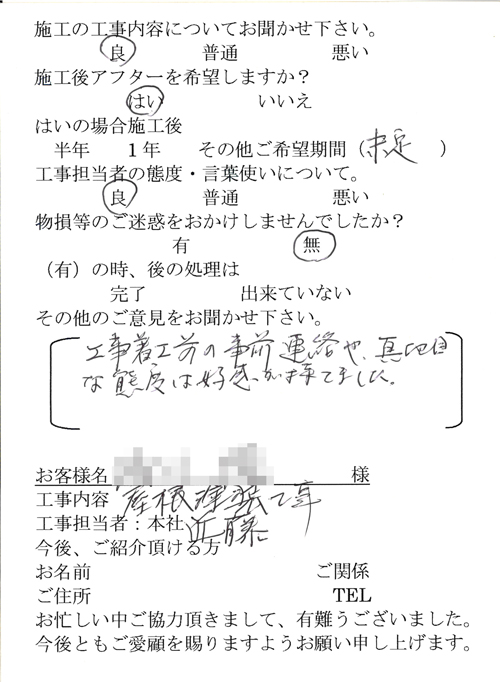 施工の工事内容についてお聞かせ下さい。
良 普通 悪い
施工後アフターを希望しますか?
はい いいえ
はいの場合施工後
半年 1年 その他ご希望期間(未定 )
工事担当者の態度・言葉使いについて。
良 普通 悪い
物損等のご迷惑をおかけしませんでしたか?
有 無
(有)の時、後の処理は
完了 出来ていない
その他のご意見をお聞かせ下さい。
工事着工前の事前連絡や、真面目
な態度は好感が持てました。
お客様名 様
工事内容 屋根塗装工事
工事担当者:本社 近藤
今後、ご紹介頂ける方
お名前 ご関係
ご住所 TEL
お忙しい中ご協力頂きまして、有難うございました。
今後ともご愛顧を賜りますようお願い申し上げます。